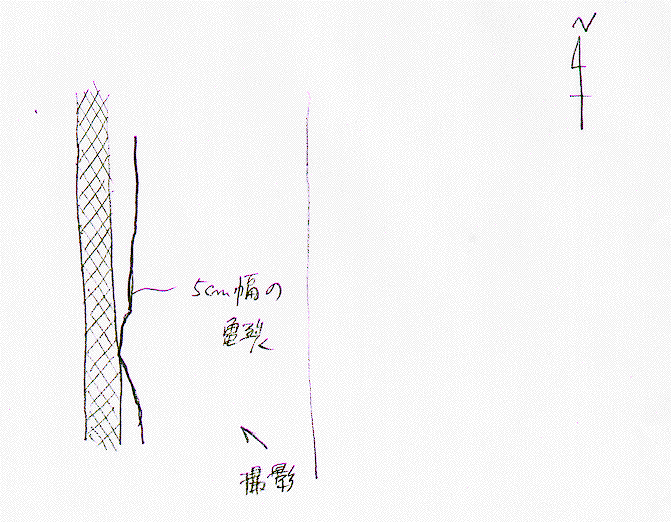 N
5cm幅の
亀裂
撮影